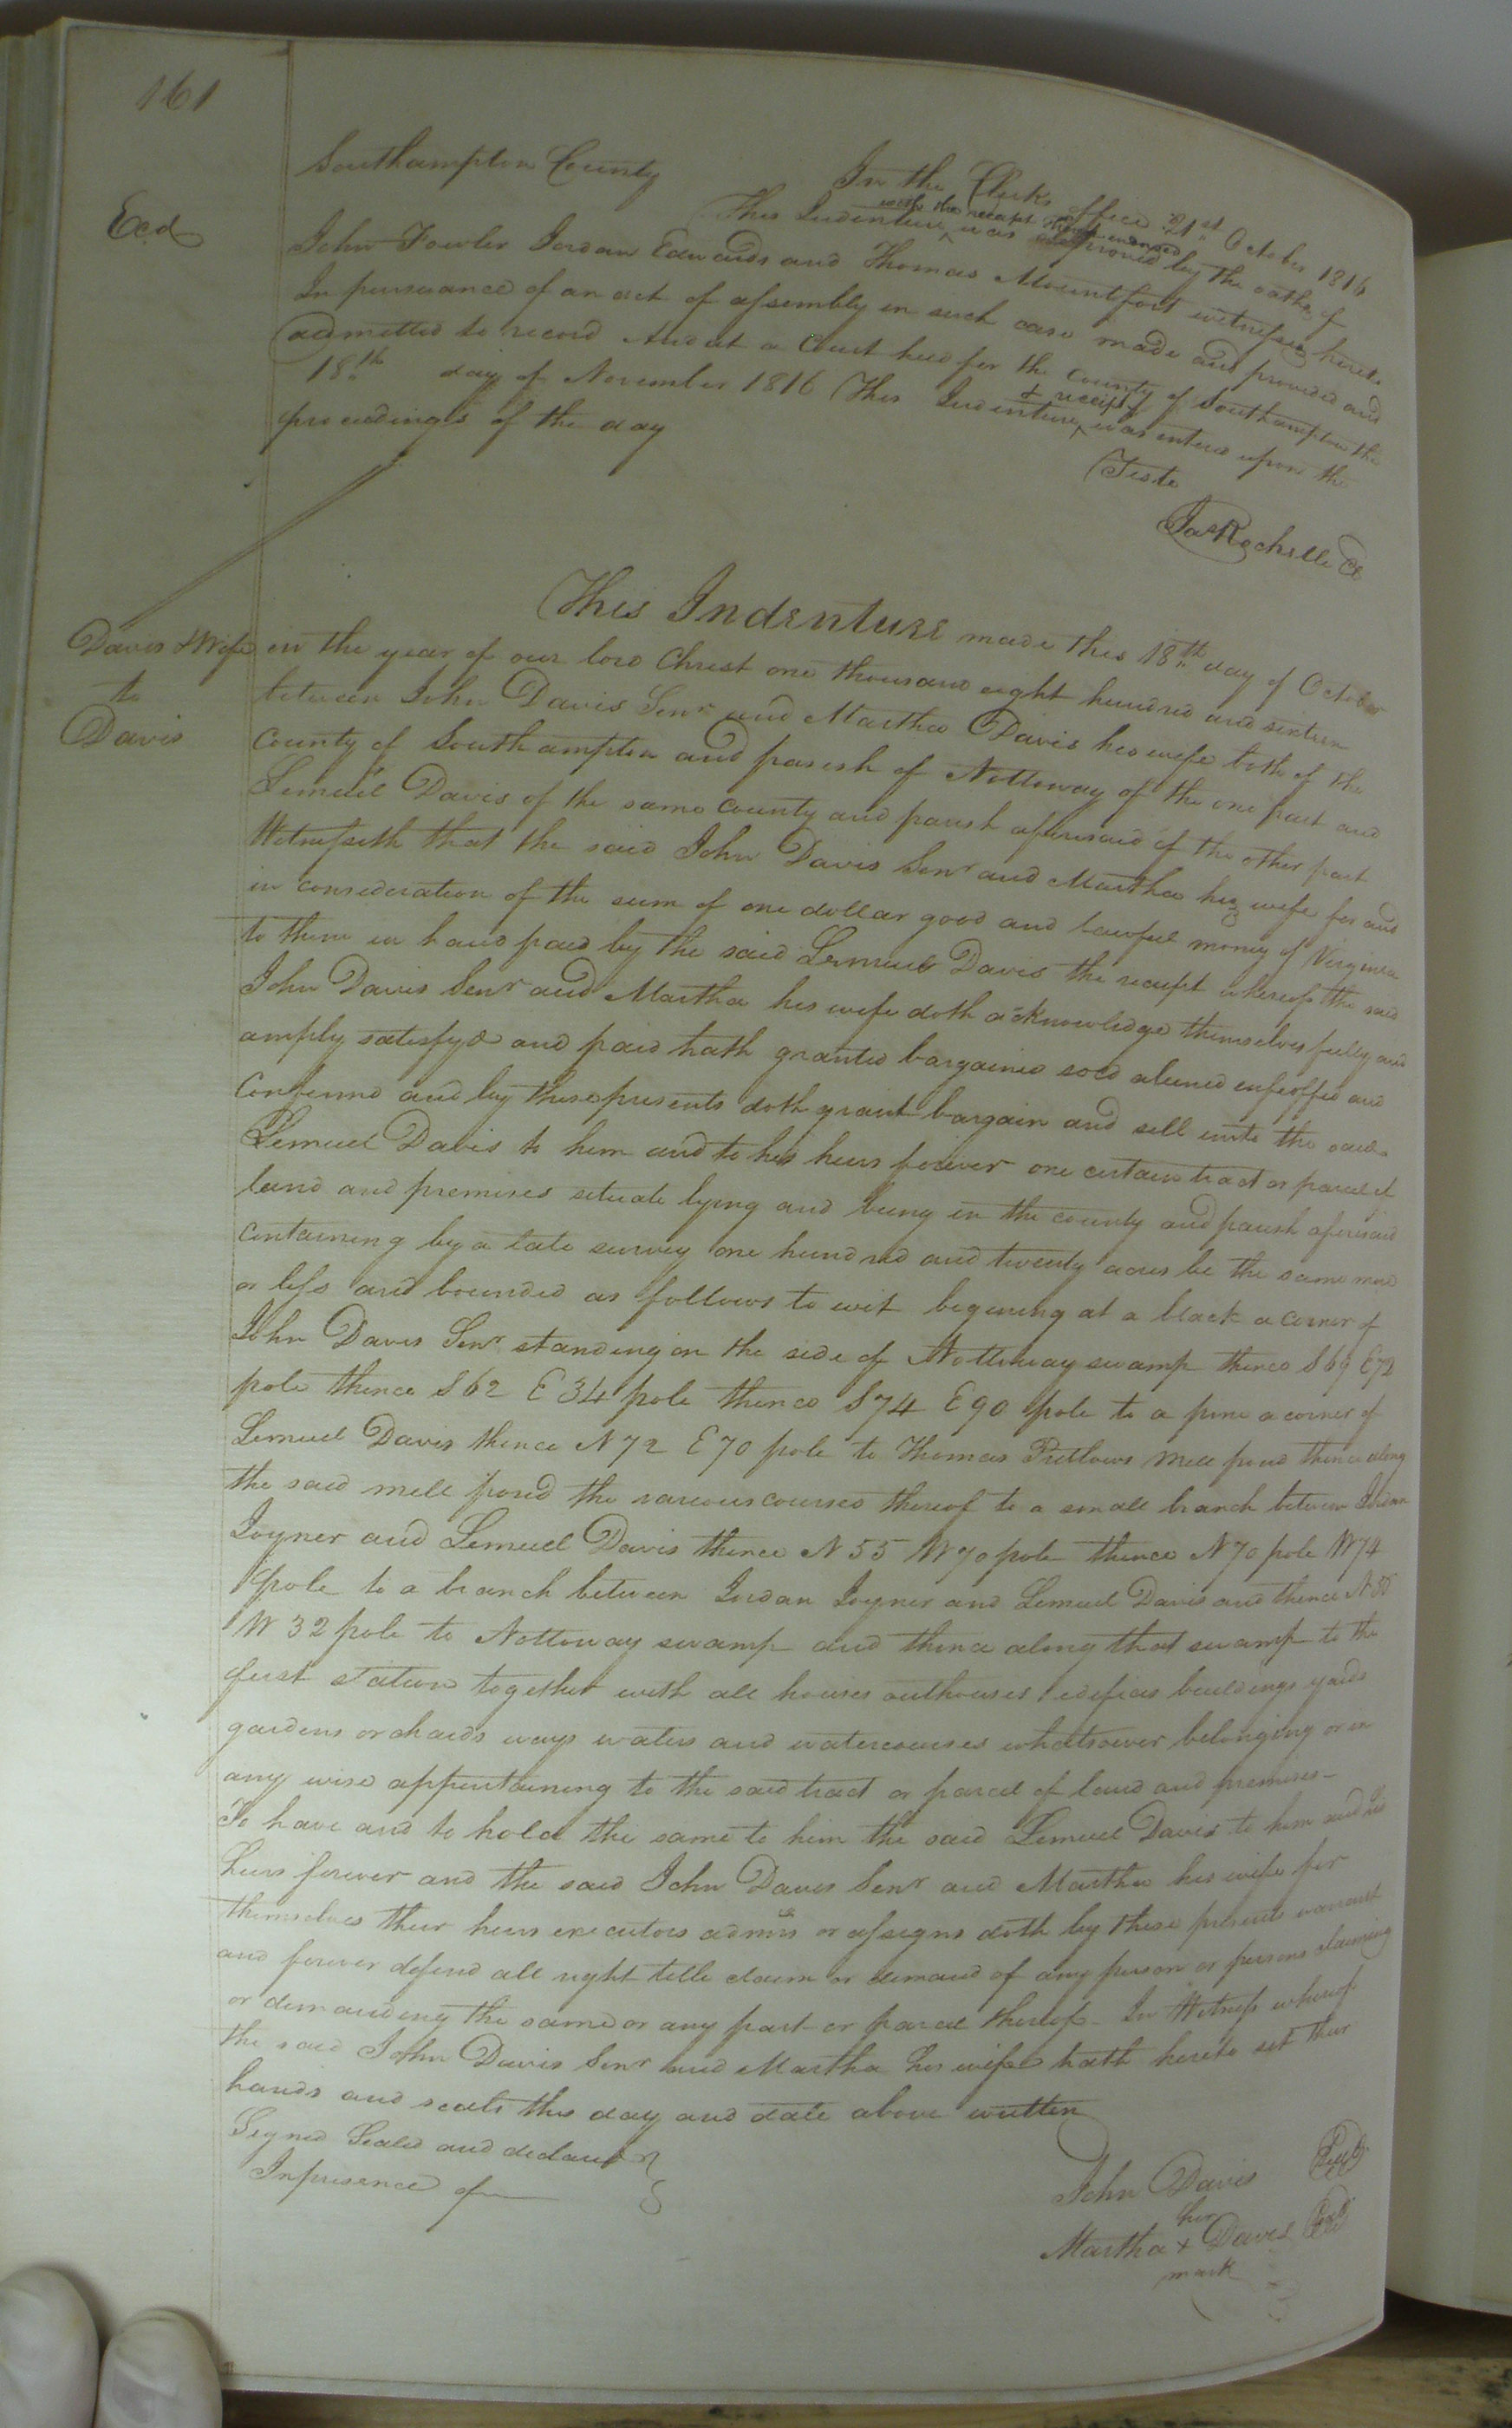 161
Southampton County In the Clerks office 21st October 1816
Exd
with the receipt thereon endorsed
This Indenture ^ was proved by the oaths of
John Fowler Jordan Edwards and Thomas Mountfort witnesses hereto
In pursuance of an act of assembly in such case made and provided and
admitted to record And at a Court held for the County of Southampton the
& receipt
18th day of November 1816 This Indenture ^ was entered upon the
proceedings of the day
Teste
Jas Rochelle Cl
This Indenture made this 18th day of October
Davis & Wife
to
Davis
in the year of our lord Christ one thousand eight hundred and sixteen
between John Davis Senr and Martha Davis his wife both of the
County of Southampton and parish of Nottoway of the one part and
Lemuel Davis of the same county and parish aforesaid of the other part
Witnesseth that the said John Davis Senr and Martha his wife for and
in consideration of the sum of one dollar good and lawful money of Virginia
to them in hand paid by the said Lemuel Davis the receipt whereof the said
John Davis Senr and Martha his wife doth acknowledge themselves fully and
amply satisfyd and paid hath granted bargained sold aliened enfeoffed and
Confirmd and by these presents doth grant bargain and sell unto the said
Lemuel Davis to him and to his heirs forever one certain tract or parcel of
land and premises situate lying and being in the county and parish aforesaid
containing by a late survey one hundred and twenty acres be the same more
or less and bounded as follows to wit begining at a black a corner of
John Davis Senr standing on the side of Nottoway swamp thence S 69 E 72
pole thence S 62 E 34 pole thence S 74 E 90 pole to a pine a corner of
Lemuel Davis thence N 72 E 70 pole to Thomas Pretlows mill pond thence along
the said mill pond the various courses thereof to a small branch between Jordan
Joyner and Lemuel Davis thence N 55 W 70 pole thence N 70 pole W 74
pole to a branch between Jordan Joyner and Lemuel Davis and thence N 55
W 32 pole to Nottoway swamp and thence along that swamp to the
first station together with all houses outhouses edifices buildings yards
gardens orchards ways waters and watercourses whatsoever belonging or in
any wise appurtaining to the said tract or parcel of land and premises
To have and to hold the same to him the said Lemuel Davis to him and his
heirs forever and the said John Davis Senr and Martha his wife for
themselves their heirs executors admrs or assigns doth by these presents warrant
and forever defend all right title claim or demand of any person or persons claiming
or demanding the same or any part or parcel thereof In Witness whereof
the said John Davis Senr and Martha his wife hath hereto set their
hands and seals this day and date above written
Signed Sealed and declared
In presence of
John Davis Seal
her
Martha x Davis Seal
mark